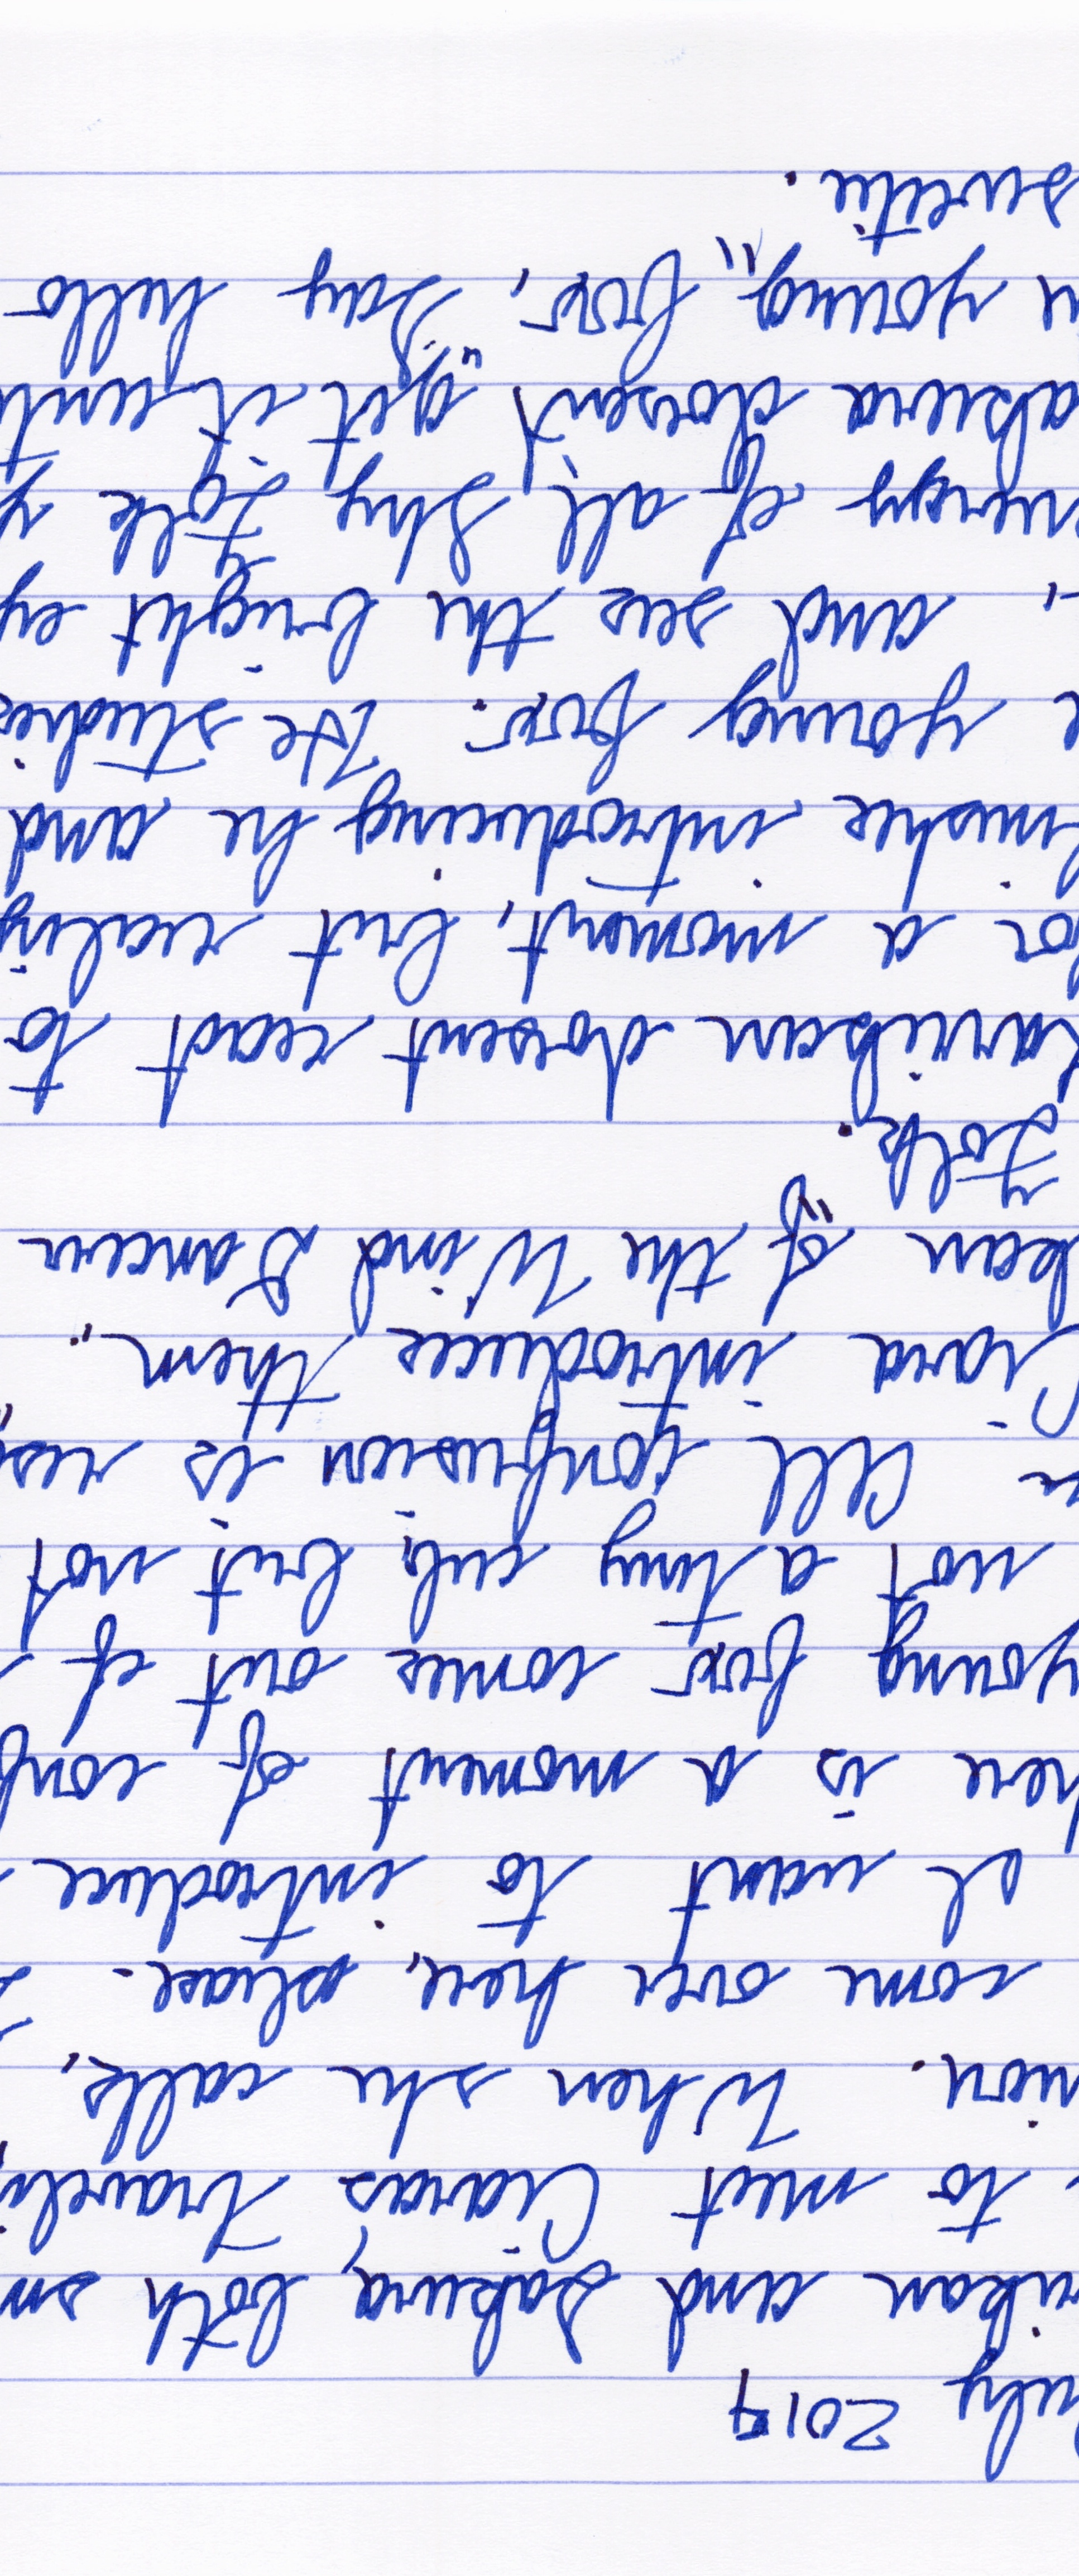 uly 2019
rikan and Sakura, both sm
to meet Ciaras, Traveli
nion. When she calls,
come over here, please. I
I want to introduce
here is a moment of conf
young fox comes out of
not a tiny cub, but not
All confusion is res
Ciara introduces them.. "
kan of the Wind Dancer
Folk."
Karrikan doesent react to
for a moment, but realiz
finishe introducing he and
e young fox. He studies
, and see the bright ey
energy of all Shy Folk y
akura doesent "get" it unti
young" fox, Say hello
sweetie.